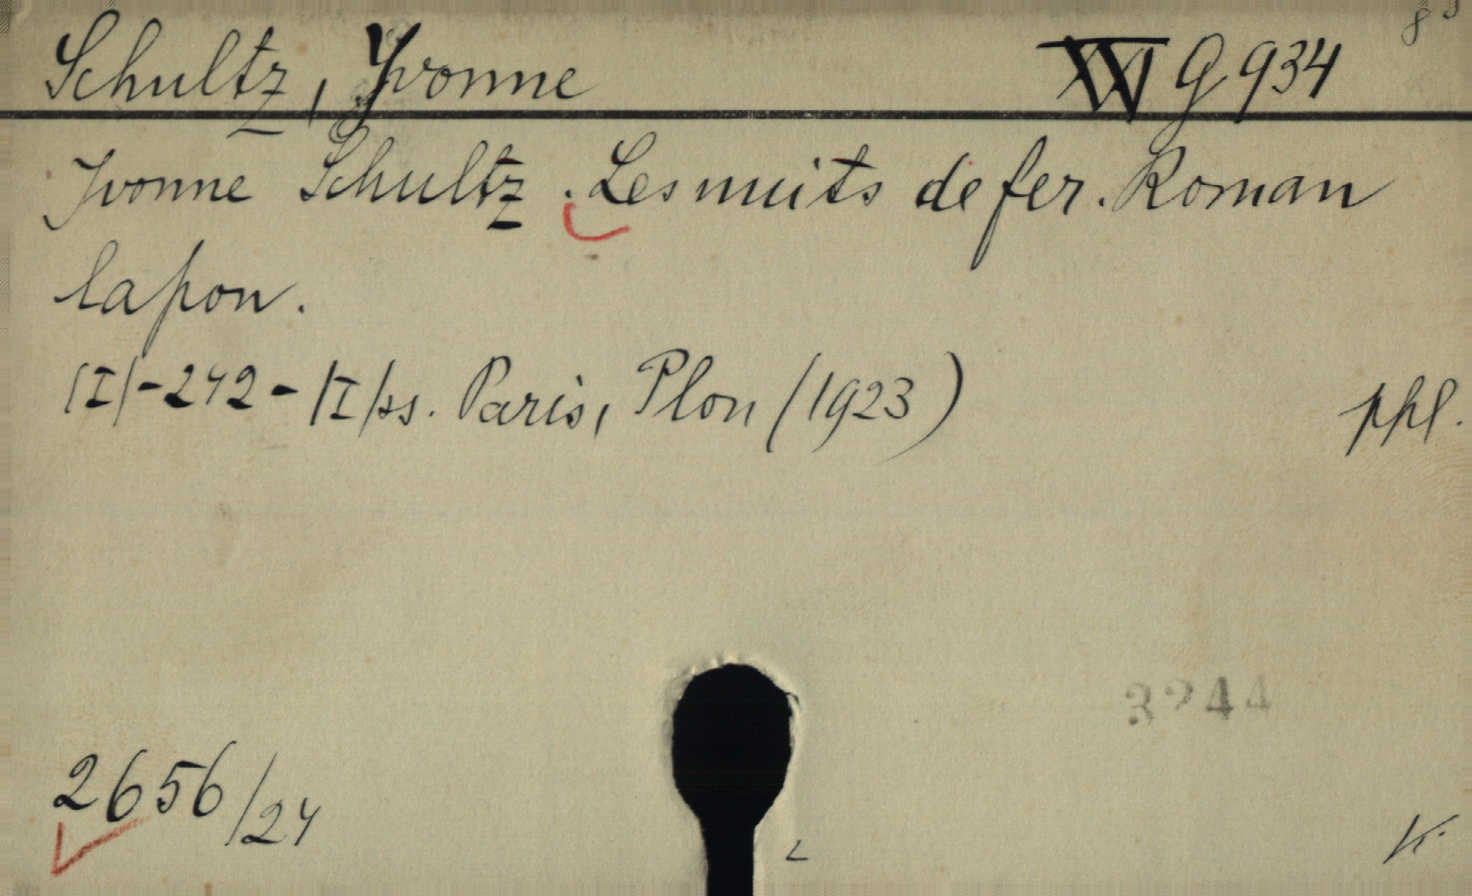 8°
Schultz, Yvonne XVI G 934
Yvonne Schultz. Les nuits de fer. Roman
lapon.
|I|-242-|I|ss. Paris, Plon (1923)
ppl.
3244
2656/24